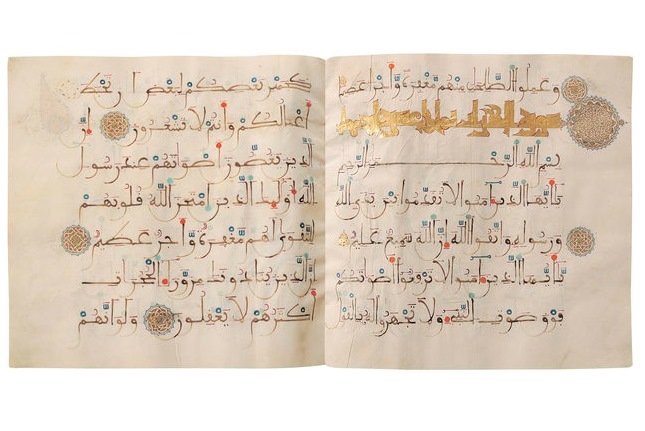 وعملوا الصلحت منهم مغفرة وأجرا عظيما
سورة الحجرات
بسم الله الرحمن الرحيم
يأيها الذين ءامنوا لا تقدموا بين يدي الله
ورسوله واتقوا الله إن الله سميع عليم
يأيها الذين ءامنوا لا ترفعوا أصوتكم
فوق صوت النبيء ولا تجهروا له بالقول
كجهر بعضكم لبعض أن تحبط
أعملكم وأنتم لا تشعرون إن
الذين يغضون أصوتهم عند رسول
الله أولئك الذين امتحن الله قلوبهم
للتقوى لهم مغفرة وأجر عظيم
إن الذين ينادونك من وراء الحجرت
أكثرهم لا يعقلون ولو أنهم